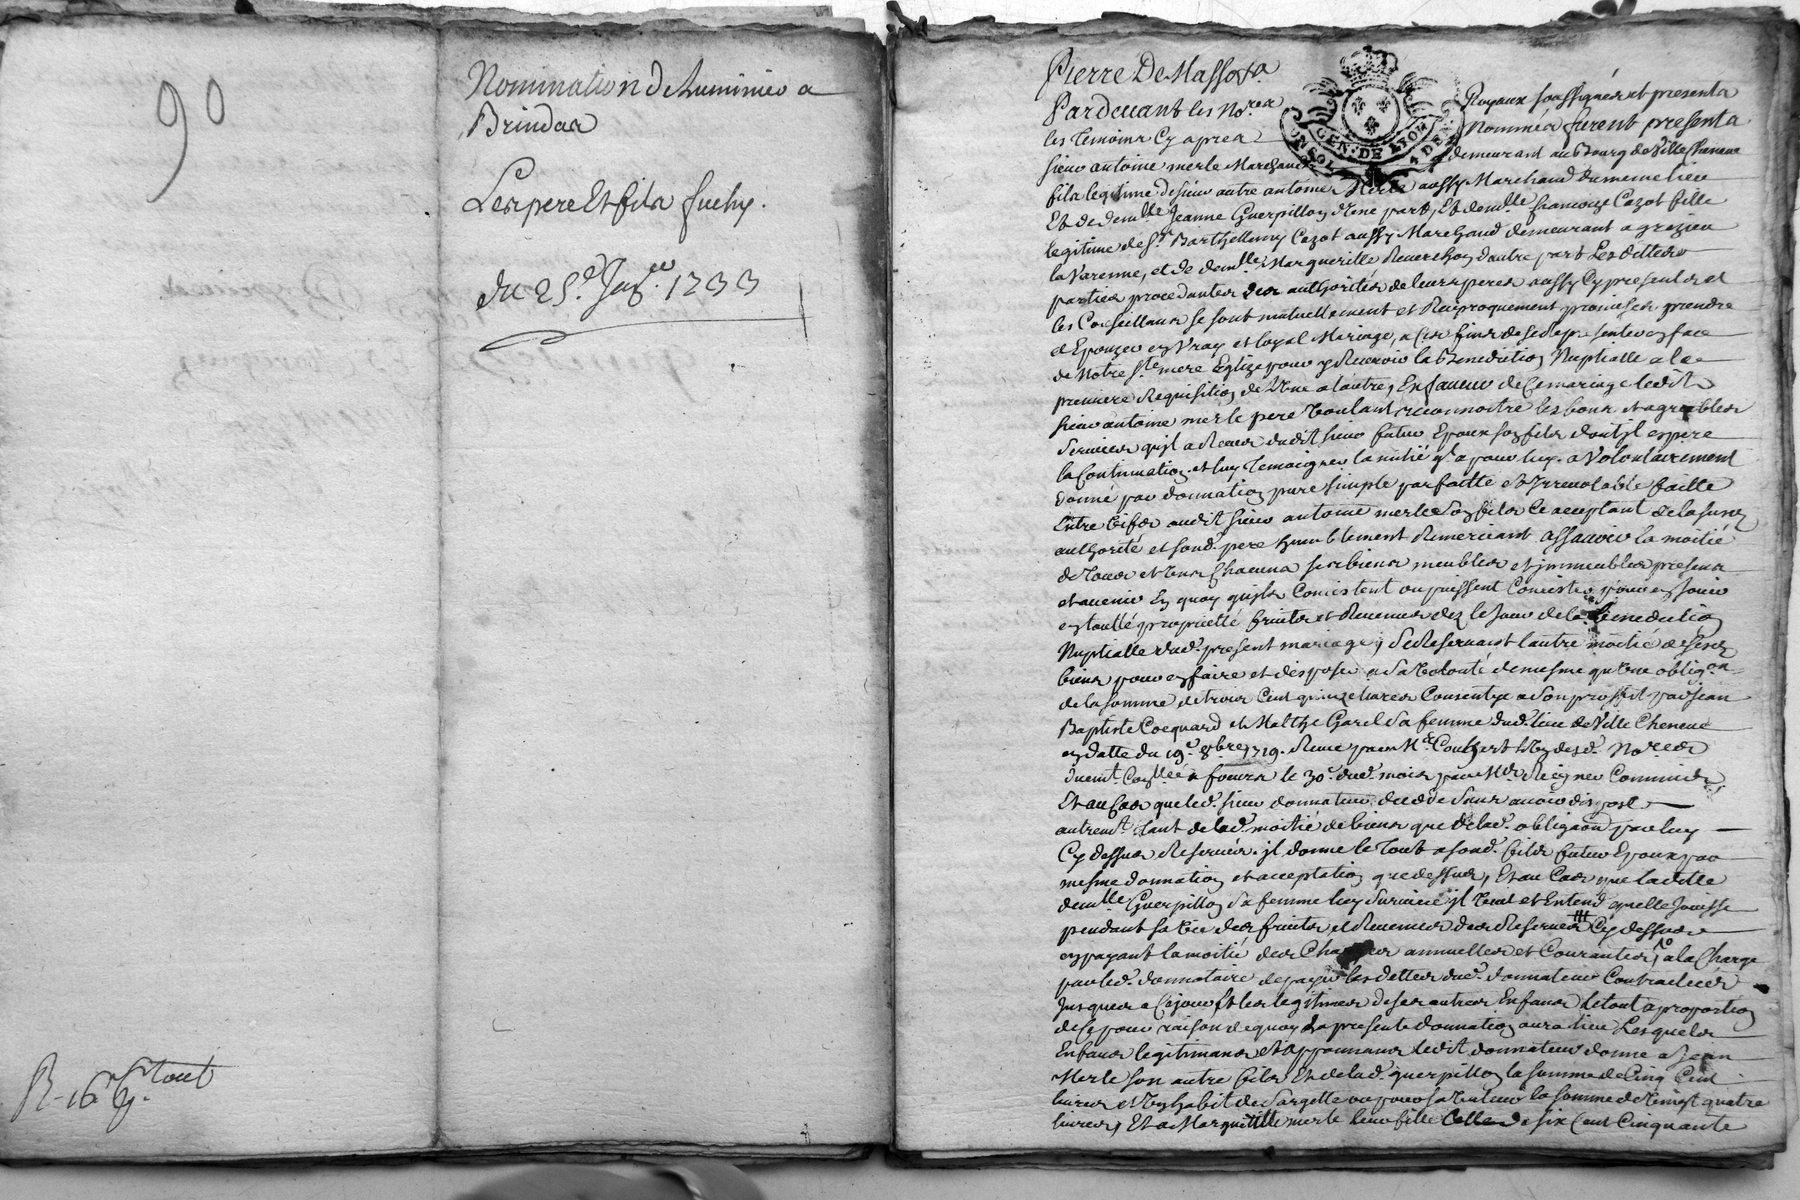 90
Nomination de Luminier a
Brindas
Les pere Et fils fuchy.
du 25e. Janv. 1733
R. 16 s tout
Pierre De Masso &a
Pardevant les Nores
Royaux soussignés et presents
les Temoins Cy apres
Nommés furent presents
GEN. DE LYON
sieur antoine merle Marchand
demeurant au Bourg de Ville Cheneve
fils legitime de sieur autre antoine Merle aussy Marchand du meme lieu
Et de demlle Jeanne Guerpillon d'Une part, Et demlle françoize Cazot fille
legitime de Sr. Barthellemy Cazot aussy Marchand demeurant a grezieu
la Varenne, et de demlle Margueritte d'autre part Lesdittes
parties procedantes des authorités de leurs peres aussy Cy presents et
les Conseillans se sont mutuellement et Reciproquement promises prendre
et Epouzer en Vray et loyal Mariage, a ces fins de se presenter en face
de Notre Ste mere Eglize pour y Recevoir la Benediction Nuptialle a la
premiere Requisition de l'Une a l'autre, En faveur de Ce mariage ledit
sieur antoine merle pere Voulant reconnoitre les bons et agreables
services qu'il a Receus dudit sieur futur Epoux son fils dont il espere
la Continuation et luy Temoigner l'amitié qu'il a pour luy. a Volontairement
donné par donnation pure simple parfaitte et Irrevocable faitte
Entre Vifs audit sieur antoine merle son fils Ce acceptant de la susd.
authorité et sond. pere humblement Remerciant assavoir la moitié
de Tous et Uns Chacuns ses biens meubles et immeubles presens
et avenir En quoy qu'ils Concistent ou puissent Concister pour en Jouir
en toutte proprietté fruits et Revenus dez le Jour de la Benediction
Nuptialle dud. present mariage, se Reservant l'autre moitié de sesd.
biens pour en faire et disposer a sa Volonté de mesme qu'Une obligon
de la somme de trois Cent quinze livres Consentye a son proffit par Jean
Baptiste Cocquard et Matthe Garel sa femme dud. lieu de Ville Cheneve
en datte du 19e. 8bre 1719. Receue par Me. L'Un desd. Nores
duemt. Conllée a feurs le 30e. dud. mois par Commis
Et au Cas que led. sieur donnateur decede sans avoir disposé
autremt. tant de lad. moitié de biens que de lad. obligaon par luy
Cy dessus Reservés. il donne le Tout a sond. fils futur Epoux par
mesme donnation et acceptation que dessus, Et au Cas que laditte
demlle Guerpillon sa femme luy survive il Veut et Entend quelle Jouisse
pendant sa Vie des fruits et Revenus des Reserves Cy dessus
en payant la moitié des Charges annuelles et Courantes, a la Charge
par led. donnataire de payer les dettes dud. donnateur Contractées
Jusques a Ce jour Et les legitimes de ses autres Enfans le tout a proportion
de ce pour raison de quoy La presente donnation aura lieu Lesquels
Enfans legitimans et appannans ledit donnateur donne a Jean
Merle son autre fils Et de lad. guerpillon la somme de Cinq Cent
livres et Un habit de Sargette ou pour sa Valeur la somme de Vingt quatre
livres, Et a Margueritte merle leur fille Celle de six Cent Cinquante